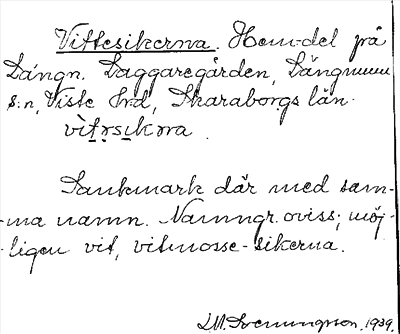 Vittesikerna. Hem-del på
Långn. Baggaregården, Långnum
s:n, Viste hrd, Skaraborgs län.
vìt̠ṛsik̠ṇa.
Sankmark där med sam-
-ma namn. Namngr. oviss; möj-
-ligen vit, vitmosse-sikerna.
1939.